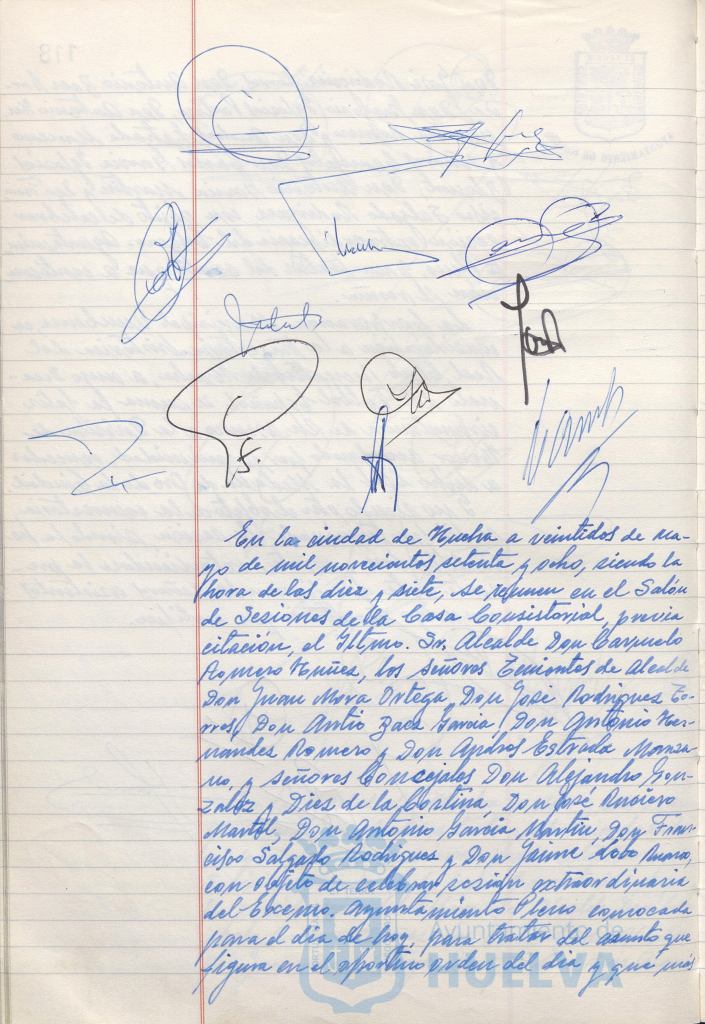 En la ciudad de Huelva a veintidos de ma-
yo de mil novecientos setenta y ocho, siendo la
hora de las diez y siete, se reunen en el Salón
de Sesiones de la Casa Consistorial, previa
citación, el Iltmo. Sr. Alcalde Don Carmelo
Romero Núñez, los señores Tenientes de Alcalde
Don Juan Mora Ortega, Don José Rodriguez To-
rres, Don Antº Baez Garcia, Don Antonio Her-
nandez Romero y Don Andres Estrada Manza-
no, y señores Concejales Don Alejandro Gon-
zalez y Diez de la Cortina, Don José
Martel, Don Antonio Garcia Martin, Don Fran-
cisco Salgado Rodriguez y Don Jaime
con objeto de celebrar sesión extraordinaria
del Excmo. Ayuntamiento Pleno convocada
para el dia de hoy, para tratar del asunto que
figura en el oportuno orden del dia y que más
Ayuntamiento de
HUELVA